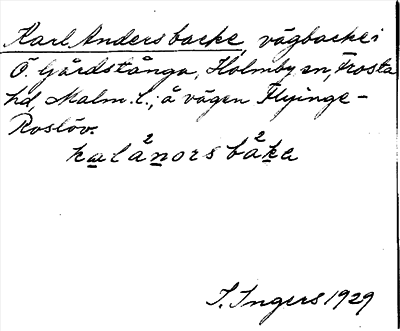 Karl Anders backe, vägbacke i
Ö. Gårdstånga, Holmby sn, Frosta
hd, Malm. l.; å vägen Flyinge-
Roslöv.
kalå²nors bå²ka
I. Ingers 1929